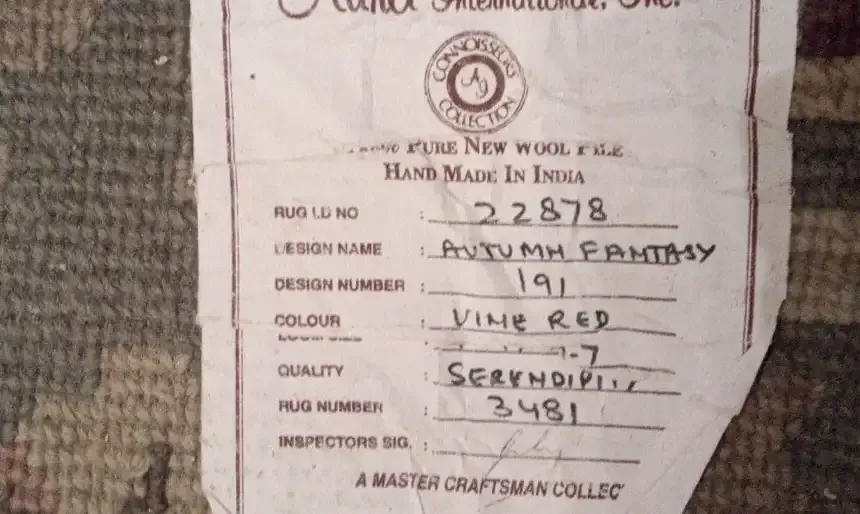 International, Inc.
CONNOISSEURS COLLECTION
PURE NEW WOOL PILE
HAND MADE IN INDIA
RUG I.D NO : 22878
DESIGN NAME : AUTUMN FANTASY
DESIGN NUMBER : 191
COLOUR : VINE RED
QUALITY : SERENDIPI
RUG NUMBER : 3481
INSPECTORS SIG. :
A MASTER CRAFTSMAN COLLEC